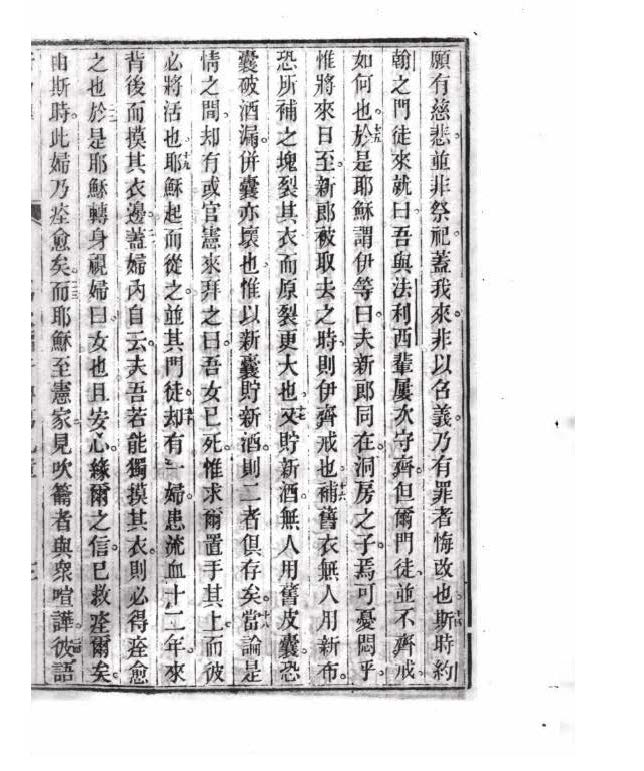 願有慈悲並非祭祀蓋我來非以召義乃有罪者悔改也十四斯時約
翰之門徒來就曰吾與法利西輩屢次守齊但爾門徒並不齊戒
如何也十五於是耶穌謂伊等曰夫新郎同在洞房之子焉可憂悶乎
惟將來日至新郎被取去之時則伊齊戒也十六補舊衣無人用新布
恐所補之塊裂其衣而原裂更大也十七又貯新酒無人用舊皮囊恐
囊破酒漏併囊亦壞也惟以新囊貯新酒則二者俱存矣十八當論是
情之間却有或官憲來拜之曰吾女已死惟求爾置手其上而彼
必將活也十九耶穌起而從之並其門徒二十却有一婦患流血十二年來
背後而摸其衣邊二一蓋婦內自云夫吾若能獨摸其衣則必得痊愈
之也二二於是耶穌轉身視婦曰女也且安心緣爾之信已救痊爾矣
由斯時此婦乃痊愈矣二三而耶穌至憲家見吹籥者與衆喧譁二四彼語